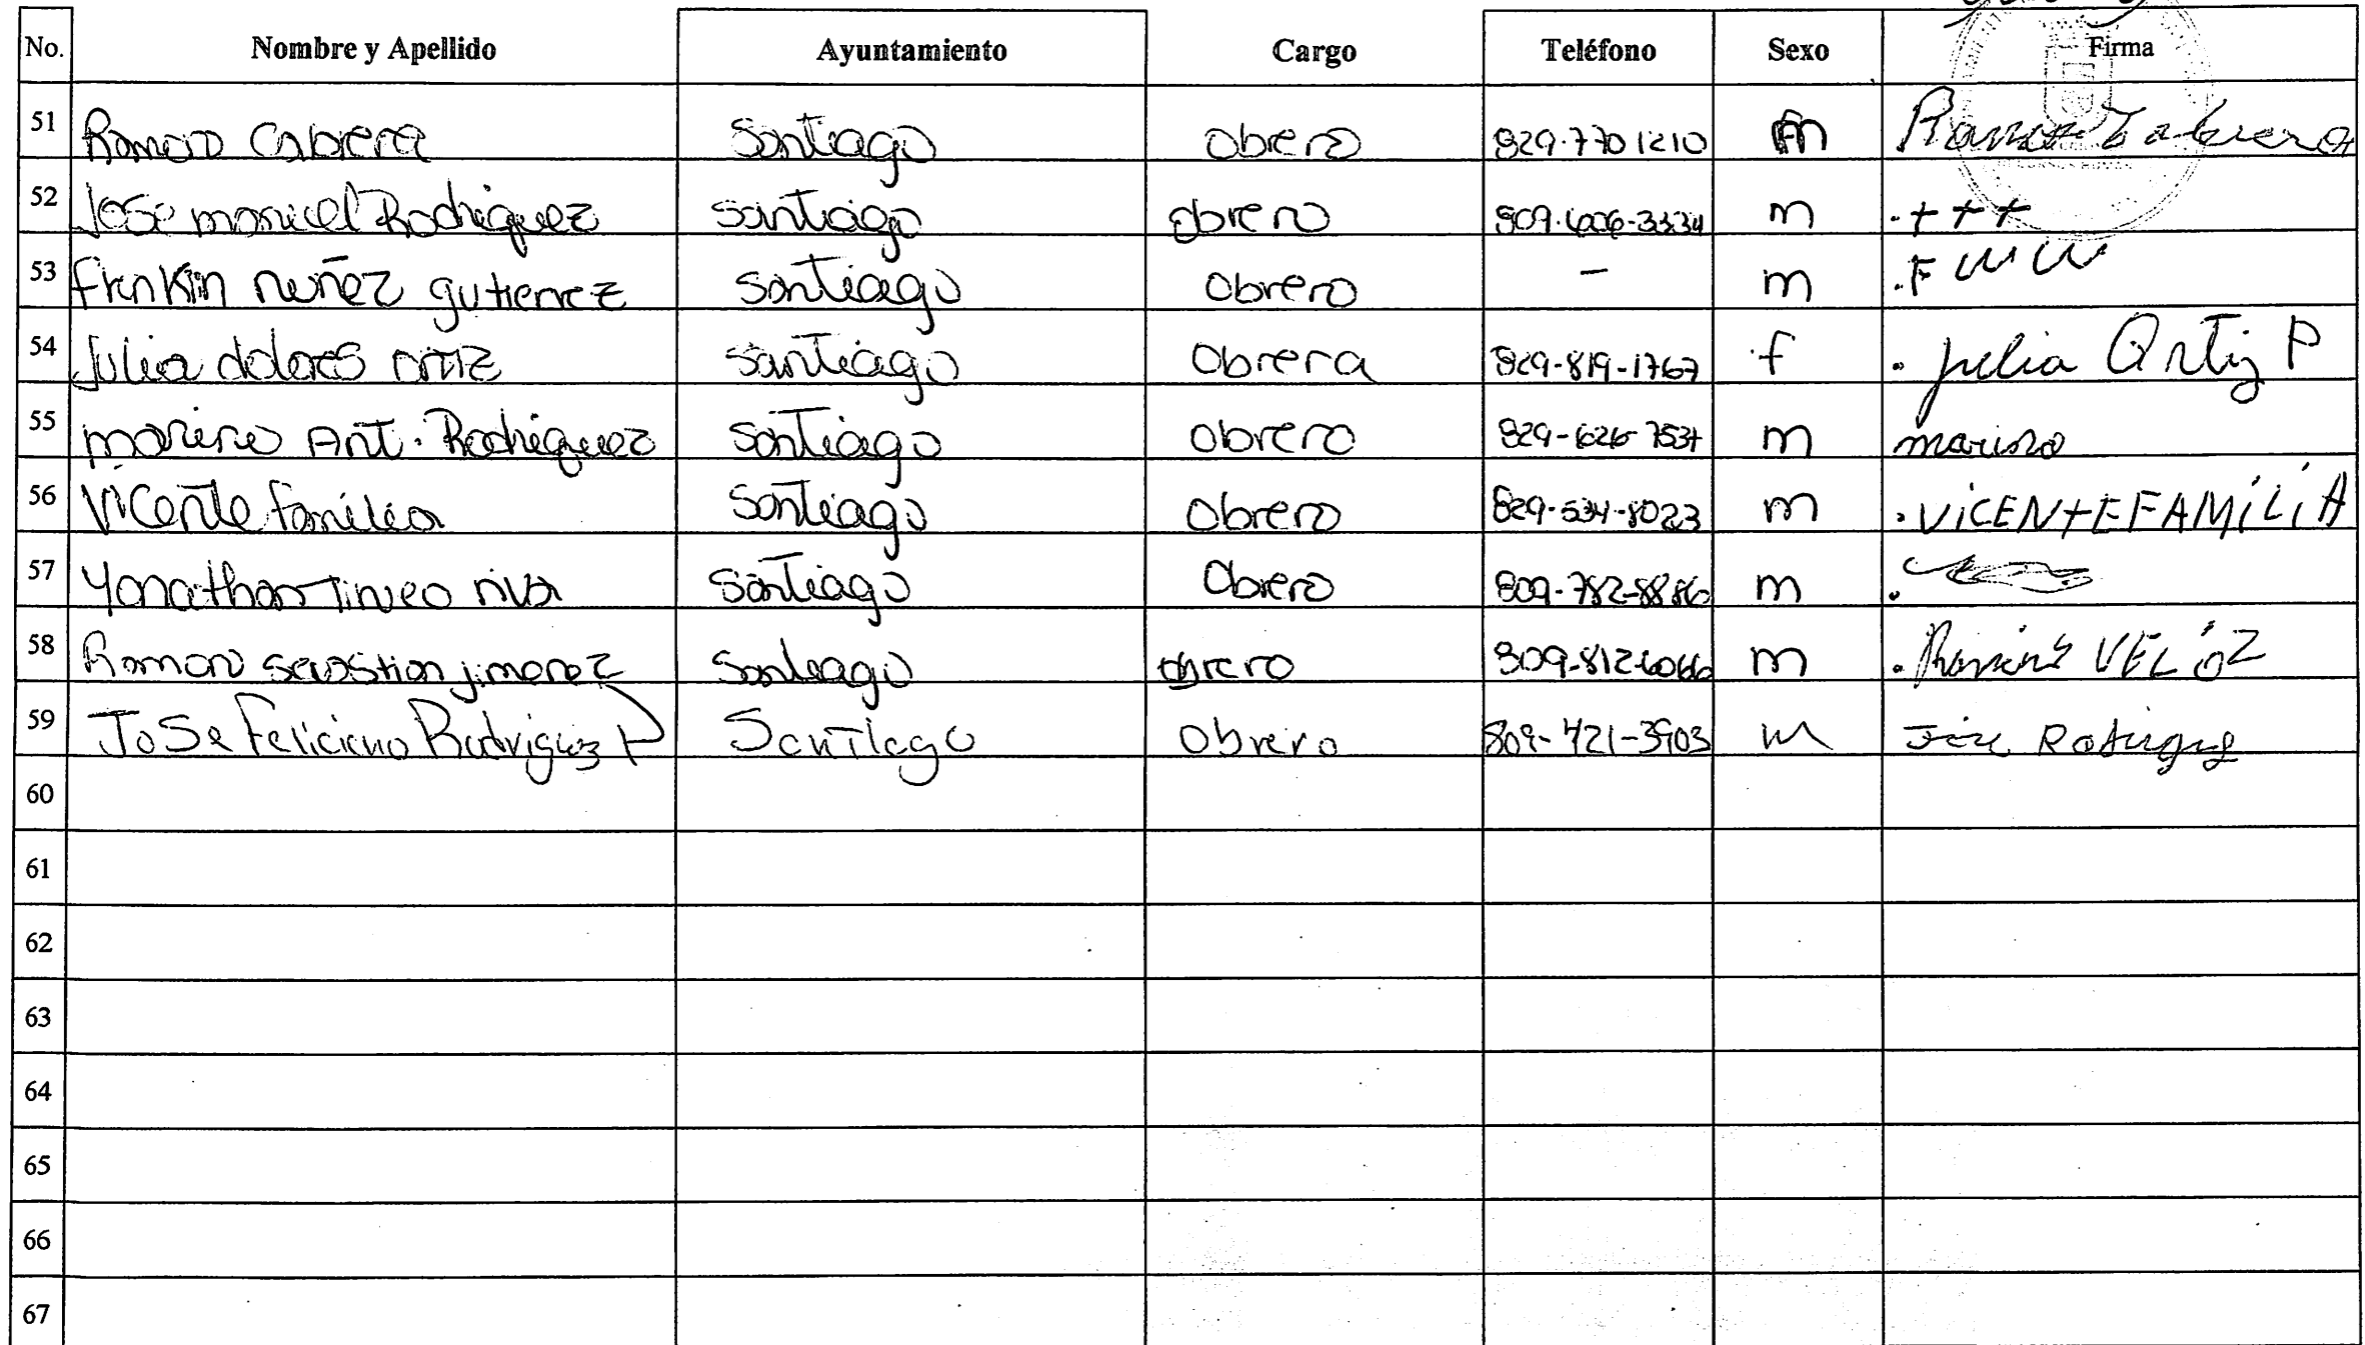 No. Nombre y Apellido Ayuntamiento Cargo Teléfono Sexo Firma
51 Ramon Cabrera Santiago Obrero 829-770 1210 m Ramon Cabrera
52 Jose manuel Rodriguez Santiago obrero 809-606-3334 m .+++
53 frnkin nuñez gutierrez Santiago Obrero - m .F
54 Julia dolores ortiz Santiago Obrera 829-819-1767 f . Julia Ortiz P
55 marino Ant. Rodriguez Santiago Obrero 829-626-7537 m marino
56 Vicente familia Santiago Obrero 829-534-8023 m .ViCENtEFAMiLiA
57 Yonathan Tineo riva Santiago Obrero 809-782-8886 m .
58 Ramon sevastian jimenez Santiago obrero 809-812-6066 m . Ramon VELOZ
59 JoSe Feliciano Rodriguez P Santiago Obrero 809-421-3903 m Jose Rodrigue
60
61
62
63
64
65
66
67